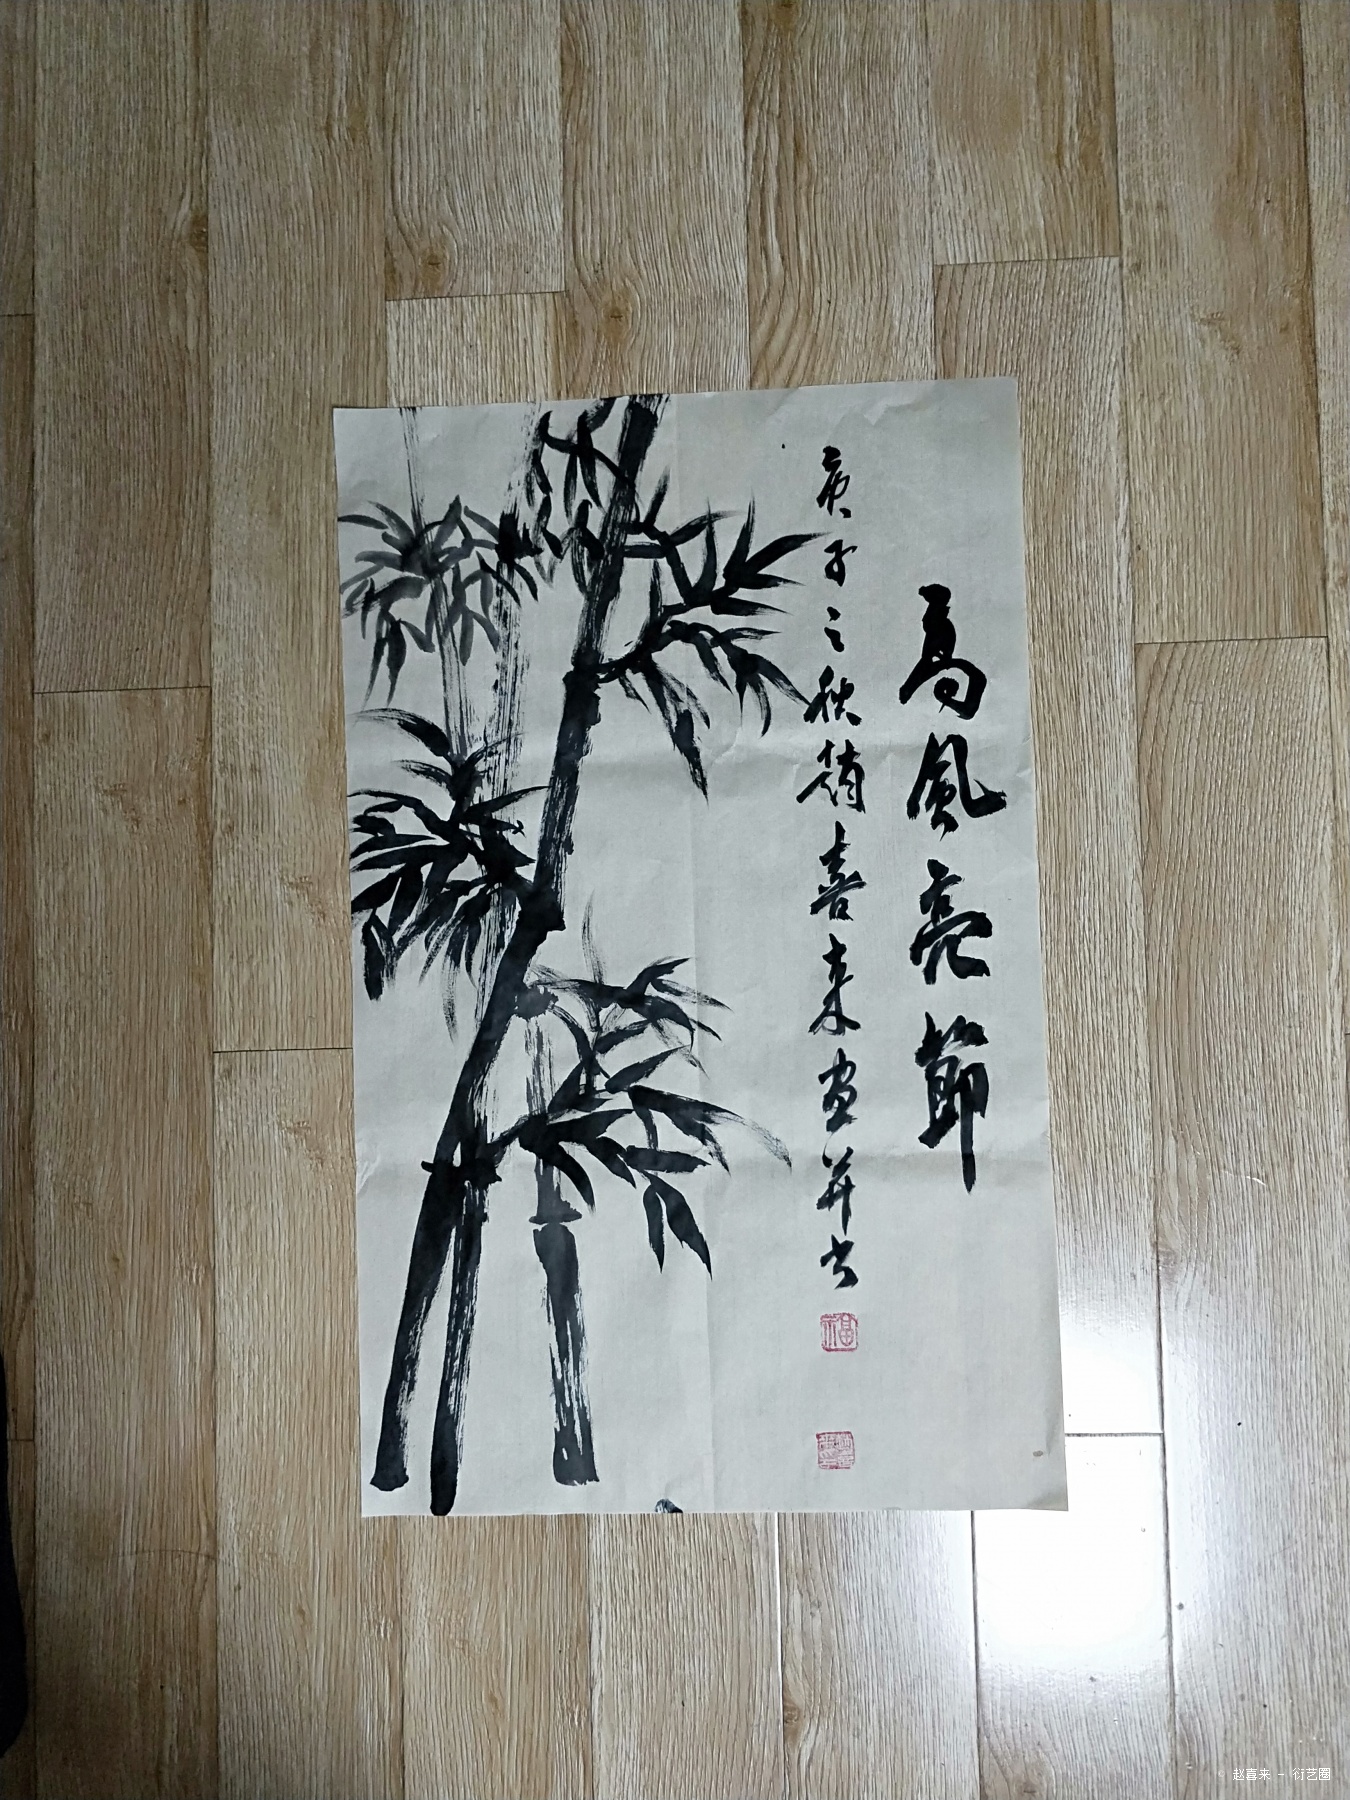 高风亮節
庚子之秋趙喜来画并书
福
赵喜来 - 衍艺圈